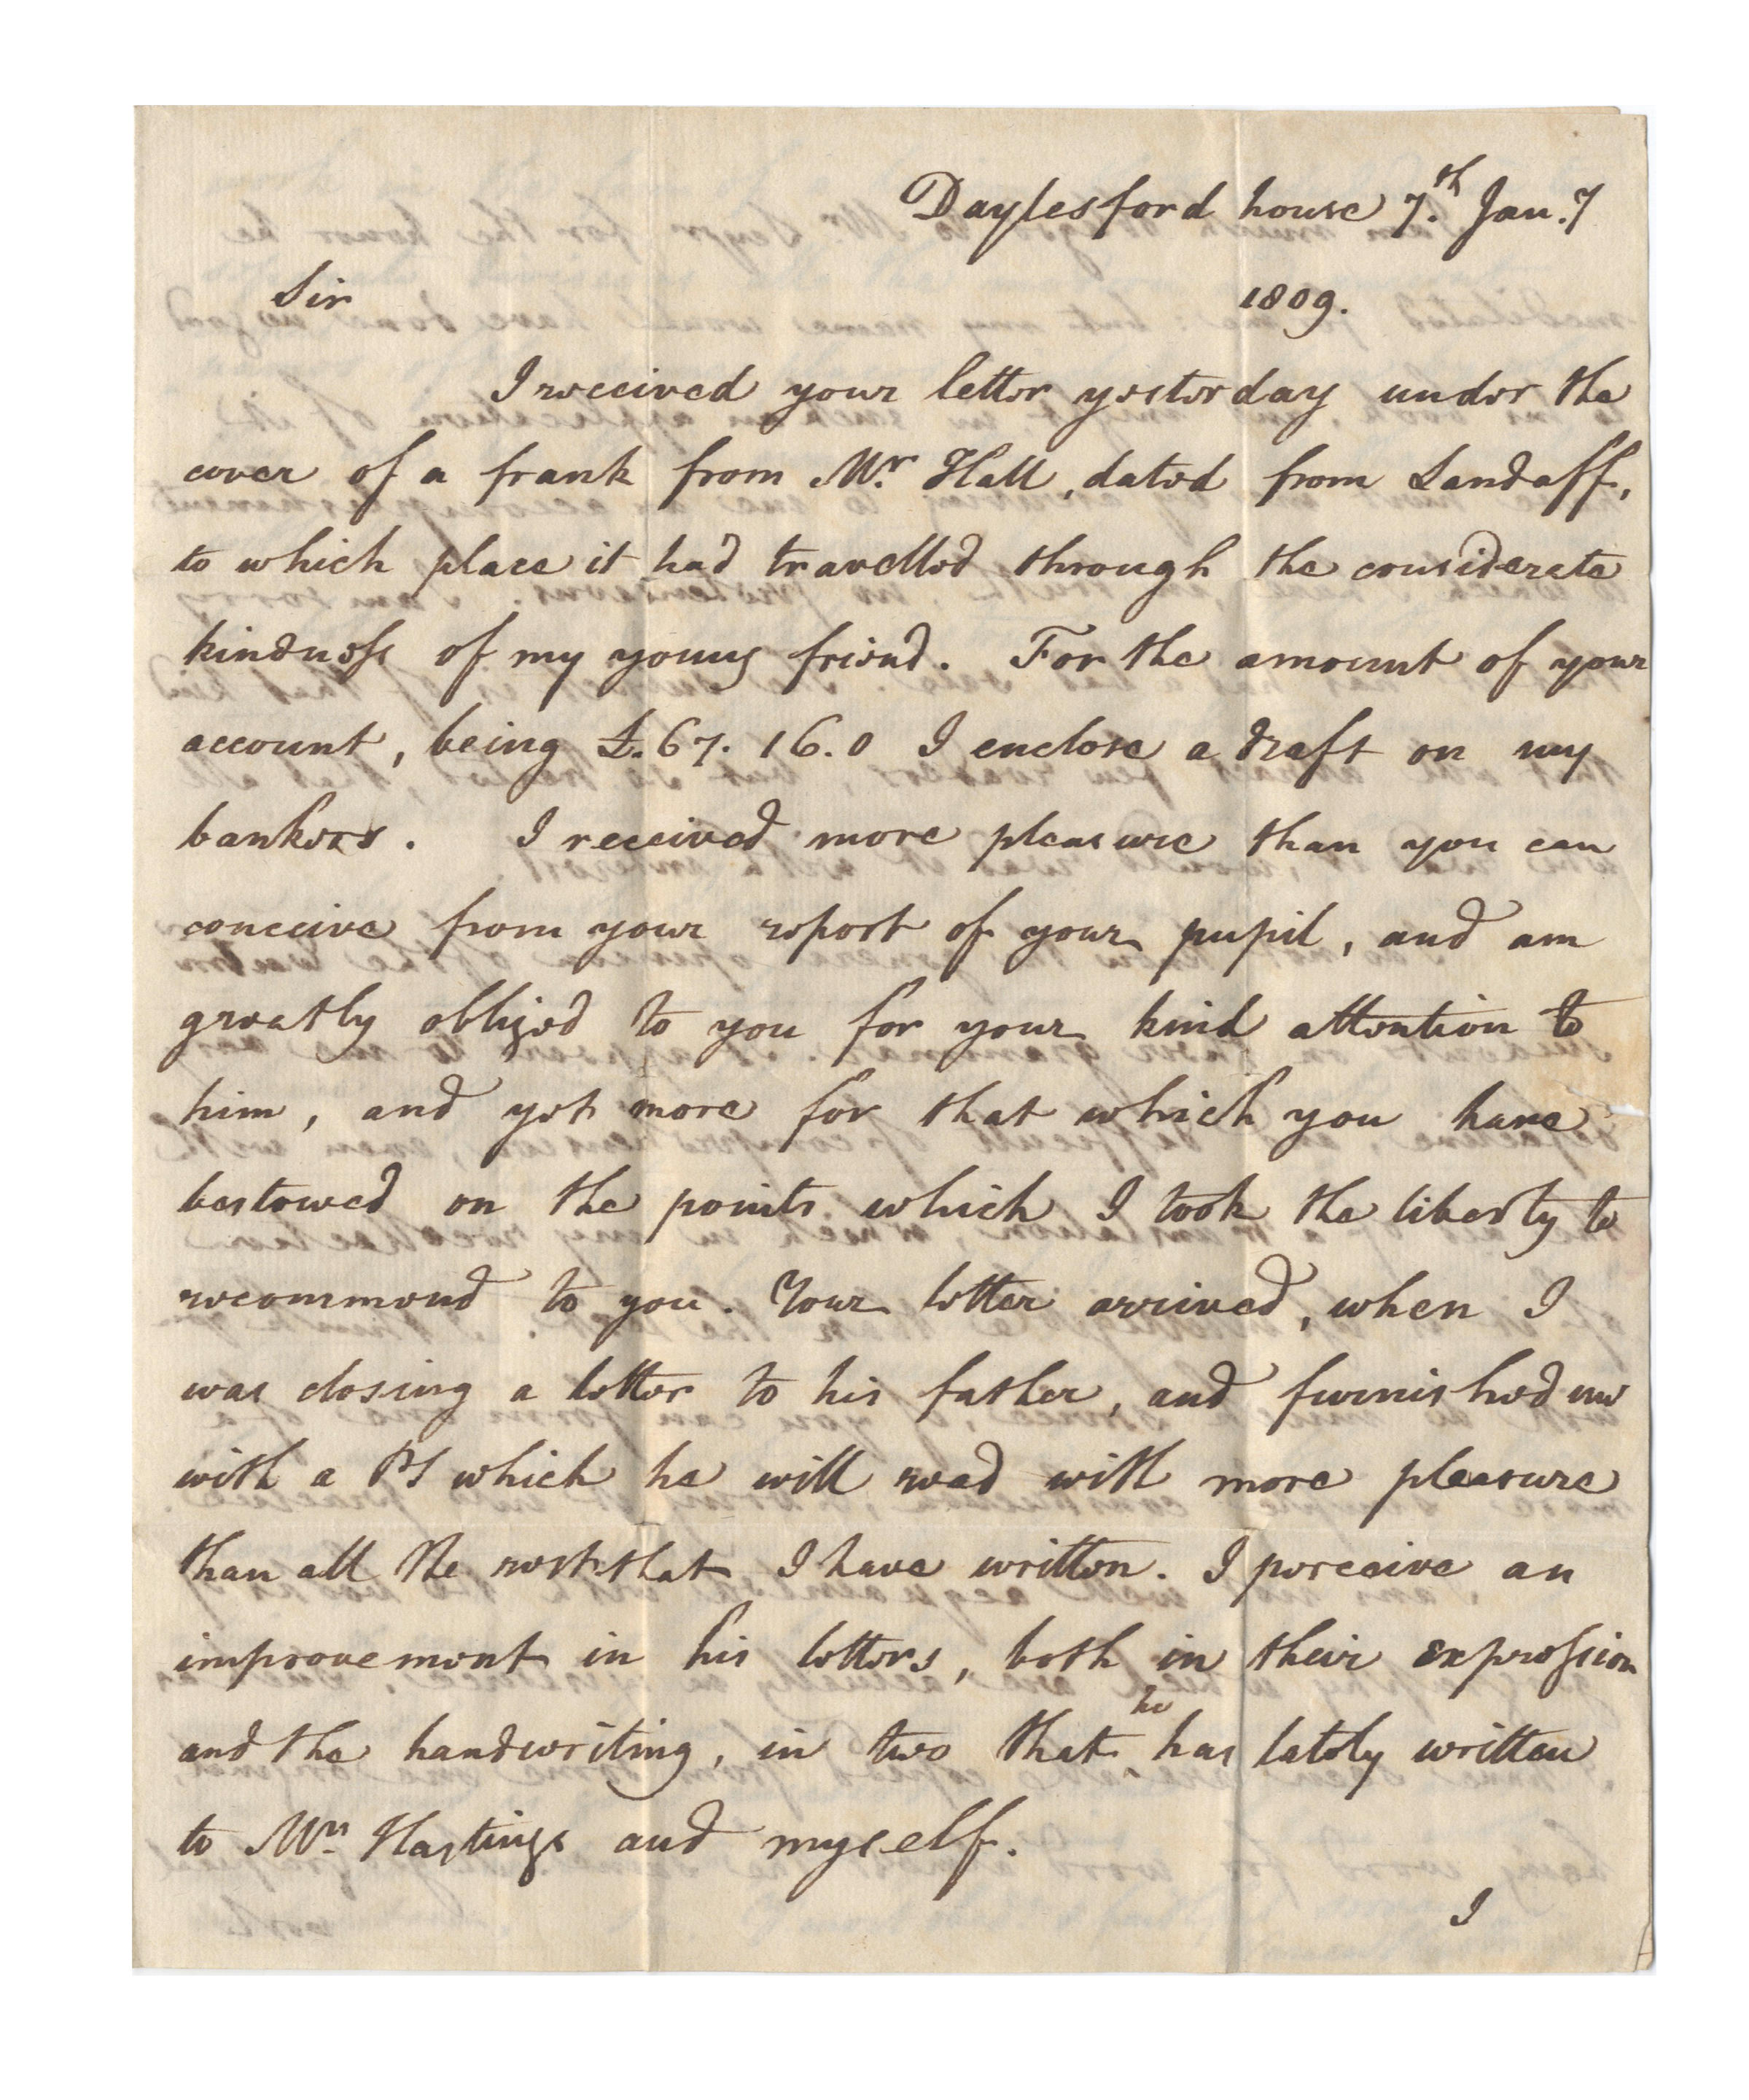 Daylesford house 7.th Jan.y
Sir 1809.
I received your letter yesterday under the
cover of a frank from Mr. Hall, dated from Landaff,
to which place it had travelled through the considerate
kindness of my young friend. For the amount of your
account, being £.67. 16. 0 I enclose a draft on my
bankers. I received more pleasure than you can
conceive from your report of your pupil, and am
greatly obliged to you for your kind attention to
him, and yet more for that which you have
bestowed on the points which I took the liberty to
recommend to you. Your letter arrived, when I
was closing a letter to his father, and furnished me
with a PS which he will read with more pleasure
than all the rest that I have written. I perceive an
improvement in his letters, both in their expression
and the handwriting, in two that he has lately written
to Mrs. Hastings and myself.
I